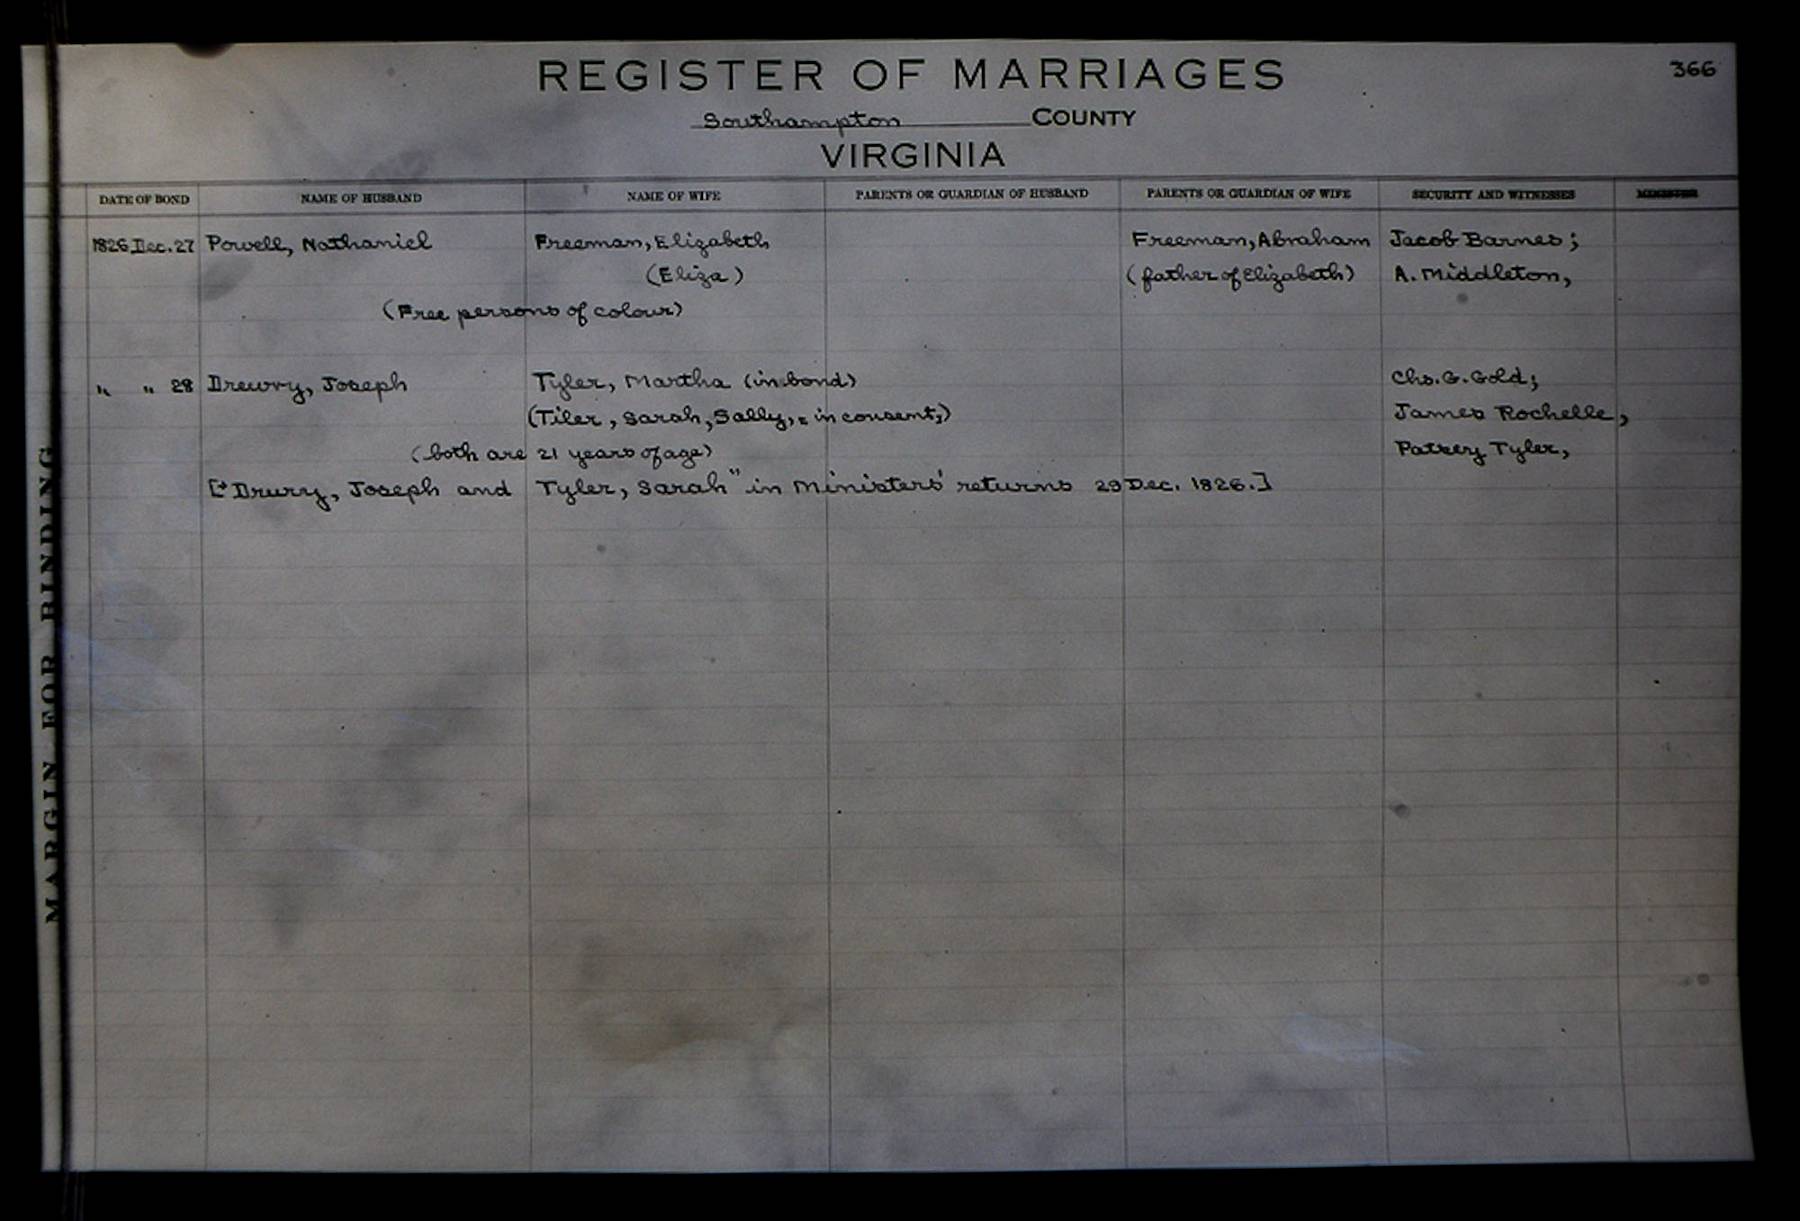 REGISTER OF MARRIAGES
366
Southampton COUNTY
VIRGINIA
DATE OF BOND NAME OF HUSBAND NAME OF WIFE PARENTS OR GUARDIAN OF HUSBAND PARENTS OR GUARDIAN OF WIFE SECURITY AND WITNESSES MINISTER
1826 Dec. 27 Powell, Nathaniel Freeman, Elizabeth Freeman, Abraham Jacob Barnes;
(Eliza) (father of Elizabeth) A. Middleton,
(Free persons of colour)
" " 28 Drewry, Joseph Tyler, Martha (in bond) Chs. G. Gold;
(Tiler, Sarah, Sally, " in consent,) James Rochelle,
(both are 21 years of age) Tyler,
["Drury, Joseph and Tyler, Sarah" in Ministers' returns 29 Dec. 1826.]
MARGIN FOR BINDING